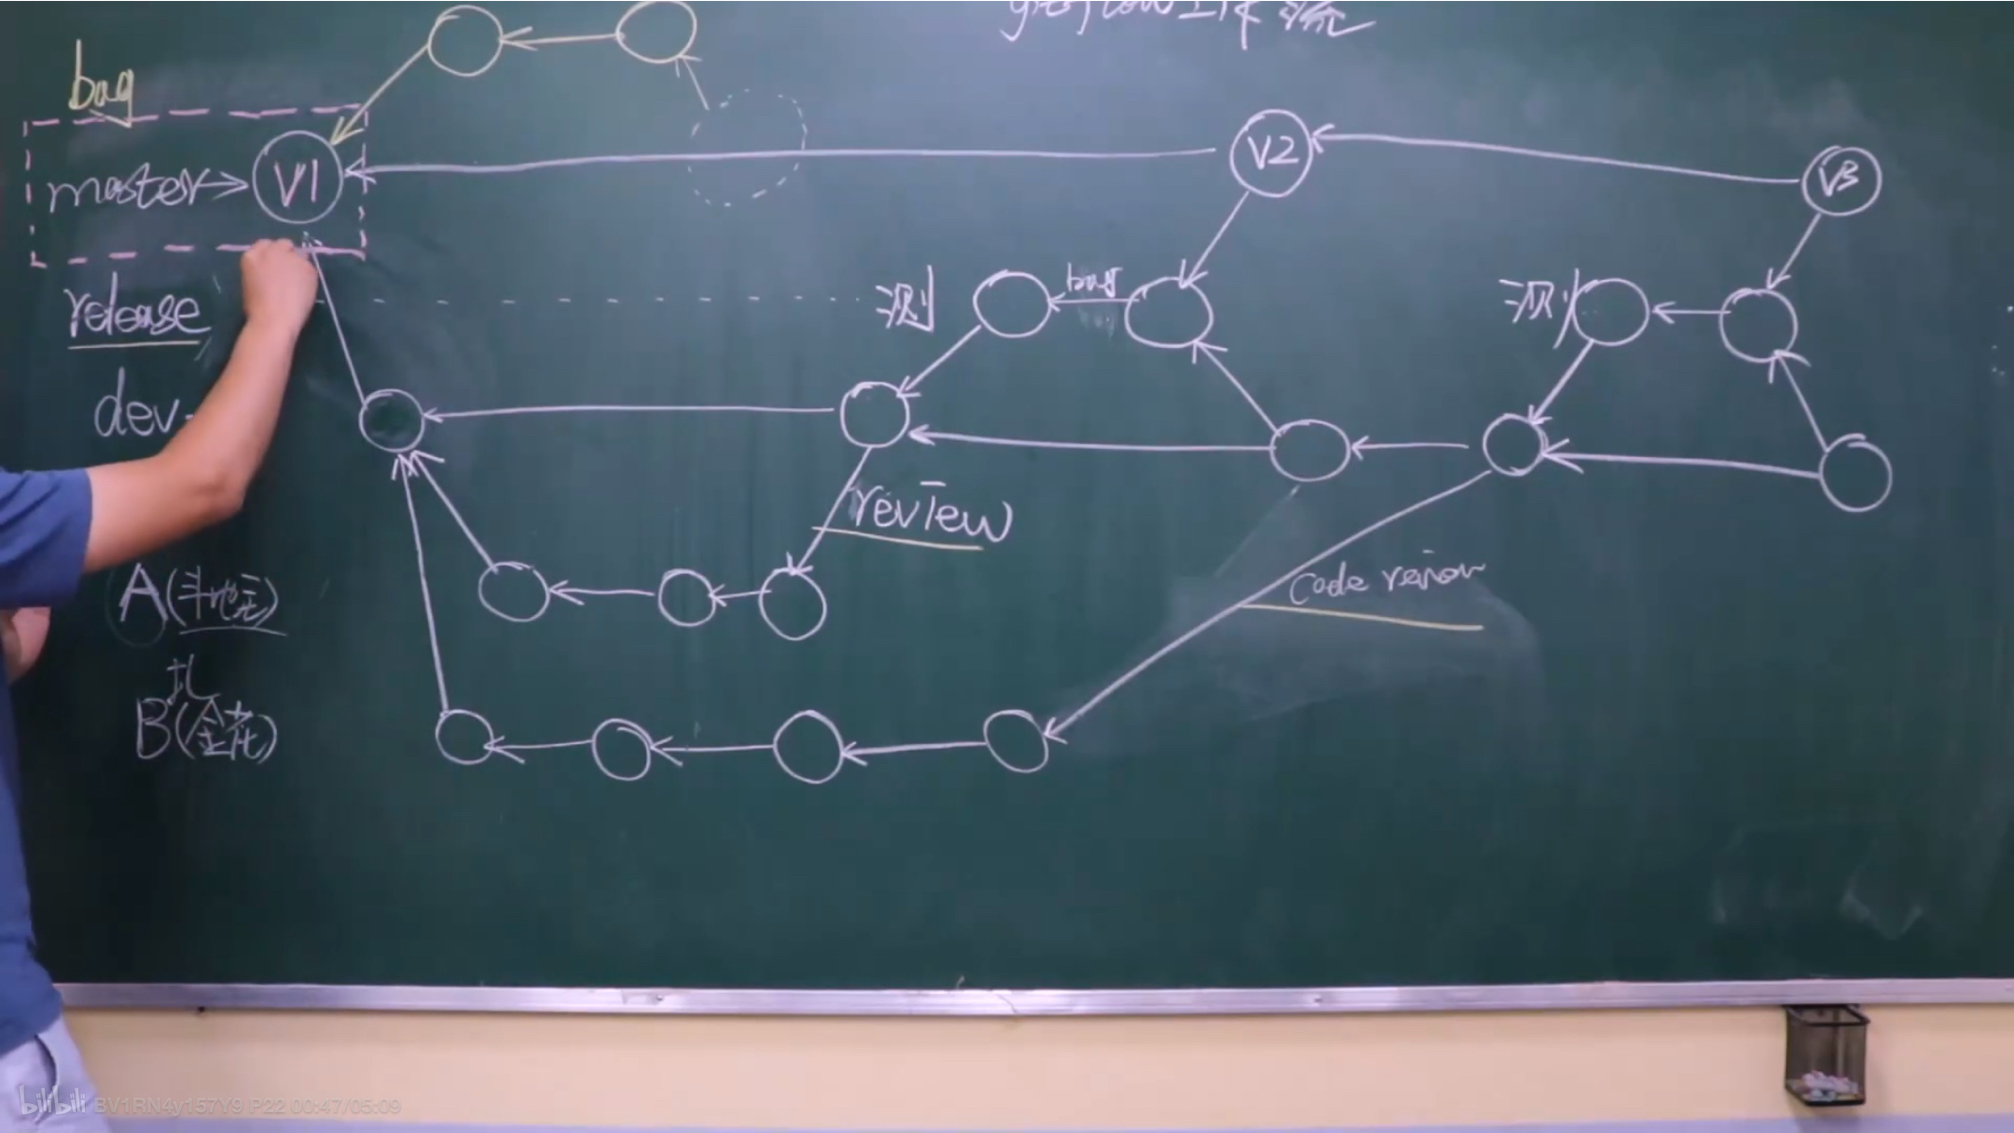 gitflow工作流
bug
master
V1
V2
V3
release
测
bug
测
dev
review
Code review
A(斗地主)
扎
B(金花)
bilibili BV1RN4y157Y9 P22 00:47/05:09